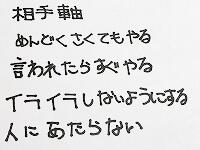 相手軸
めんどくさくてもやる
言われたらすぐやる
イライラしないようにする
人にあたらない